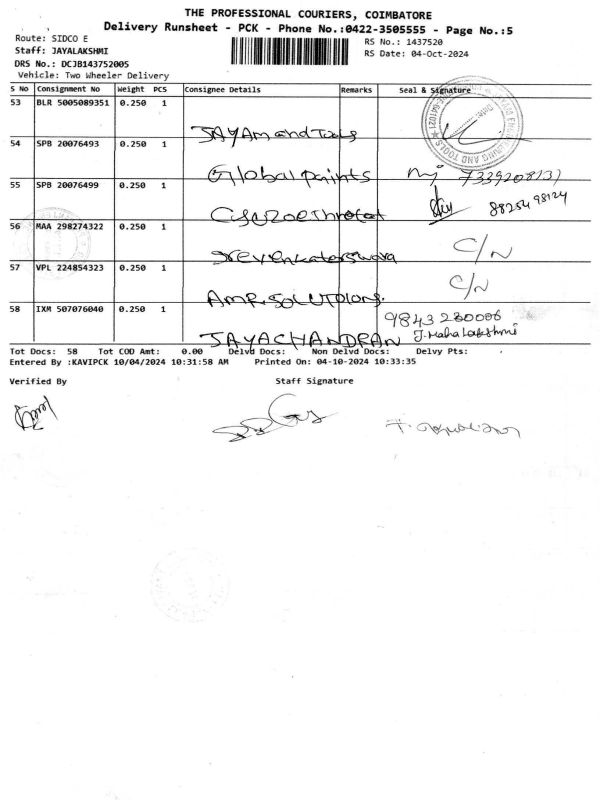 THE PROFESSIONAL COURIERS, COIMBATORE
Delivery Runsheet - PCK - Phone No.:0422-3505555 - Page No.:5
Route: SIDCO E
RS No.: 1437520
Staff: JAYALAKSHMI
RS Date: 04-Oct-2024
DRS No.: DCJB143752005
Vehicle: Two Wheeler Delivery
S No Consignment No Weight PCS Consignee Details Remarks Seal & Signature
53 BLR 5005089351 0.250 1
JAYAM and Tools
54 SPB 20076493 0.250 1
Global paints 7339208131
55 SPB 20076499 0.250 1
88254 98124
56 MAA 298274322 0.250 1
C/N
57 VPL 224854323 0.250 1
C/N
AMR SOLUTOIONS
58 IXM 507076040 0.250 1
9843230006
JAYACHANDRAN J. Mahalakshmi
Tot Docs: 58 Tot COD Amt: 0.00 Delvd Docs: Non Delvd Docs: Delvy Pts:
Entered By :KAVIPCK 10/04/2024 10:31:58 AM Printed On: 04-10-2024 10:33:35
Verified By Staff Signature